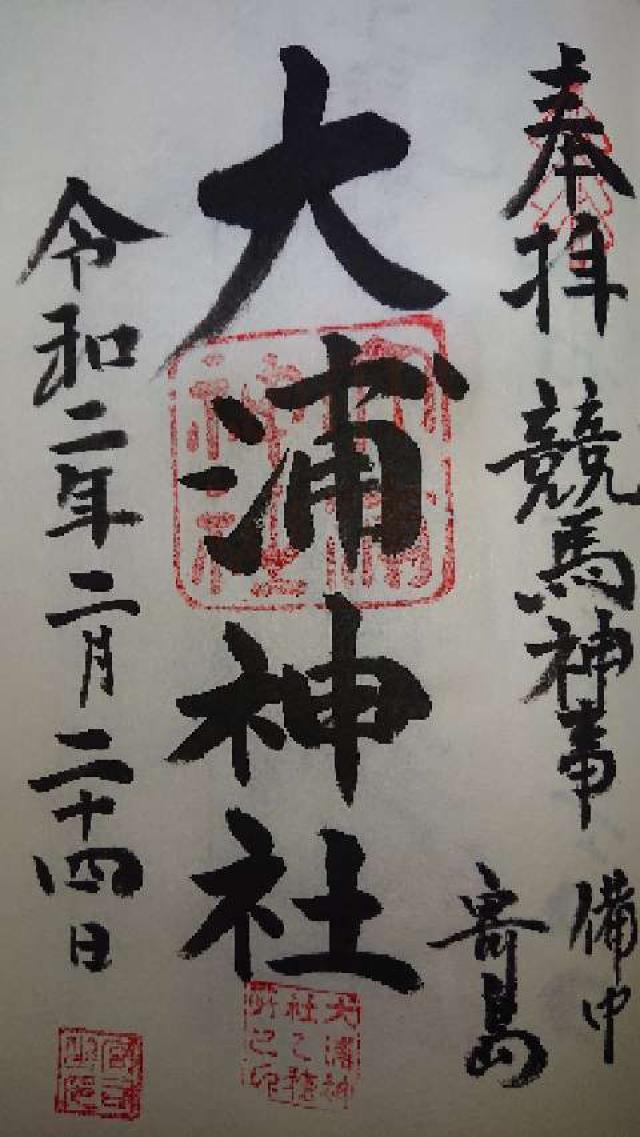 奉拝 競馬神事
備中
寄島
大浦神社
令和二年二月二十四日